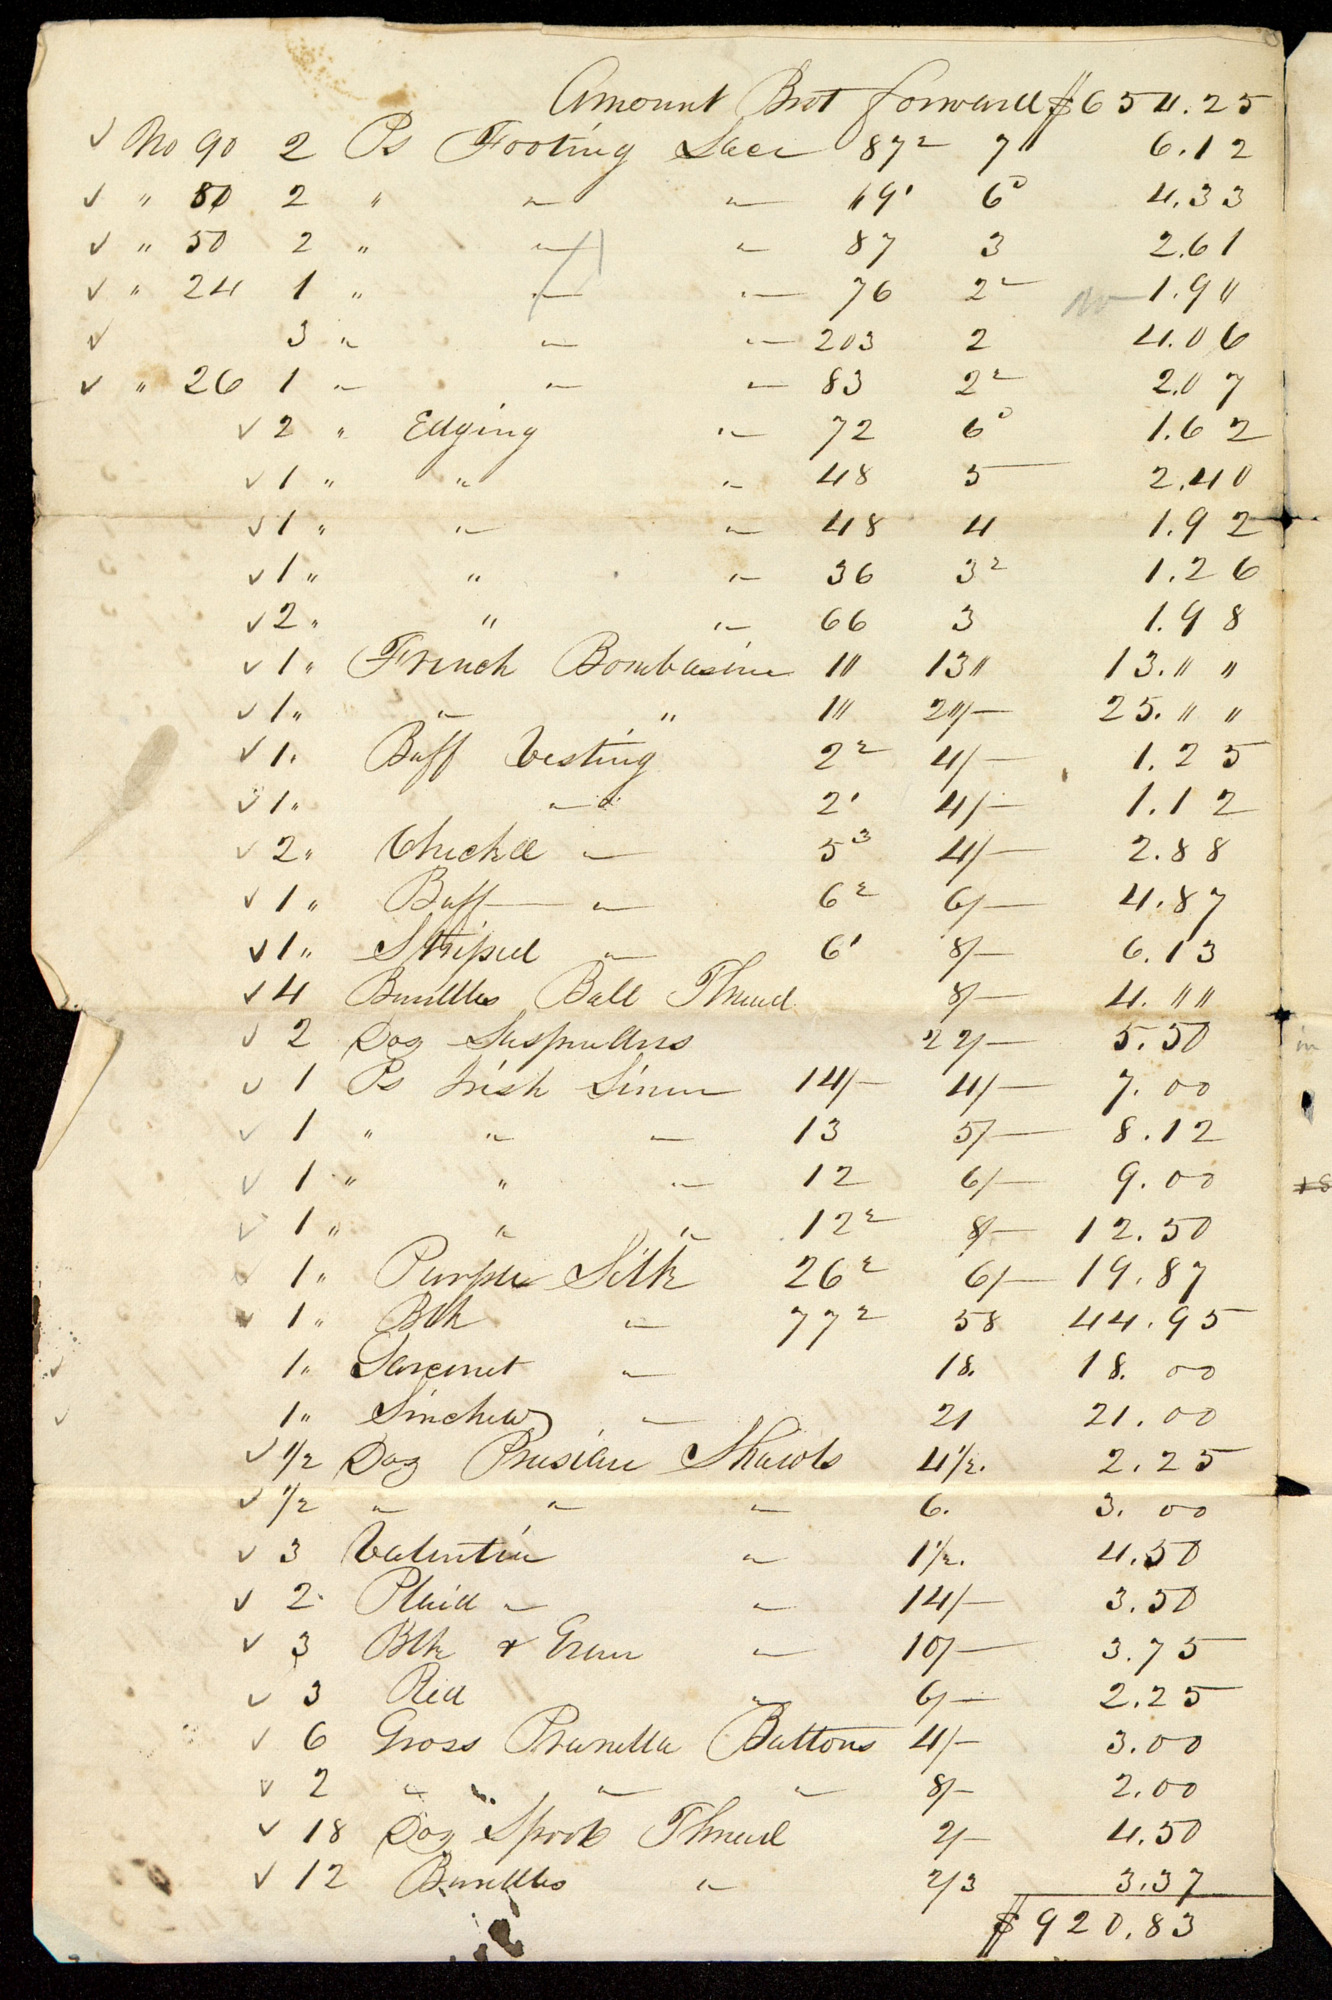 Amount Brot forward $654.25
✓ No 90 2 Ps Footing Lace 87² 7 6.12
✓ " 80 2 " " " 6⁰ 4.33
✓ " 50 2 " " " 87 3 2.61
✓ " 24 1 " " " 76 2² 1.9"
✓ 3 " " " 203 2 4.06
✓ " 26 1 " " " 83 2² 2.07
✓ 2 " Edging " 72 6⁰ 1.62
✓ 1 " " " 48 5 2.40
✓ 1 " " " 48 4 1.92
✓ 1 " " " 36 3² 1.26
✓ 2 " " " 66 3 1.98
✓ 1 " French Bombasine 1" 13" 13."  "
✓ 1 " " " 1" 25. " "
✓ 1 " Buff Vesting 2² 4/- 1.25
✓ 1 " " 2' 4/- 1.12
✓ 2 " Checkd " 5³ 4/- 2.88
✓ 1 " Buff " 6² 6/- 4.87
✓ 1 " Striped " 6' 8/- 6.13
✓ 4 Bundles Ball Thread 8/- 4. ""
✓ 2 Doz Suspenders 22/- 5.50
✓ 1 Ps Irish Linen 14/- 4/- 7.00
✓ 1 " " " 13 5/- 8.12
✓ 1 " " " 12 6/- 9.00
✓ 1 " " " 12² 8/- 12.50
✓ 1 " Purple Silk 26² 6/- 19.87
✓ 1 " Blk " 77² 58 44.95
✓ 1 " Sarcenet " 18. 18.00
✓ 1 " Sinchew " 21 21.00
✓ 1/2 Doz Prusian Shawls 4 1/2. 2.25
✓ 1/2 " " " 6. 3.00
✓ 3 Valentia " 1 1/2. 4.50
✓ 2 Plaid " " 14/- 3.50
✓ 3 Blk & Green " 10/- 3.75
✓ 3 Red " 6/- 2.25
✓ 6 Gross Prunella Buttons 4/- 3.00
✓ 2 " " " 8/- 2.00
✓ 18 Doz Spool Thread 2/- 4.50
✓ 12 Bundles " 2/3 3.37
$920.83